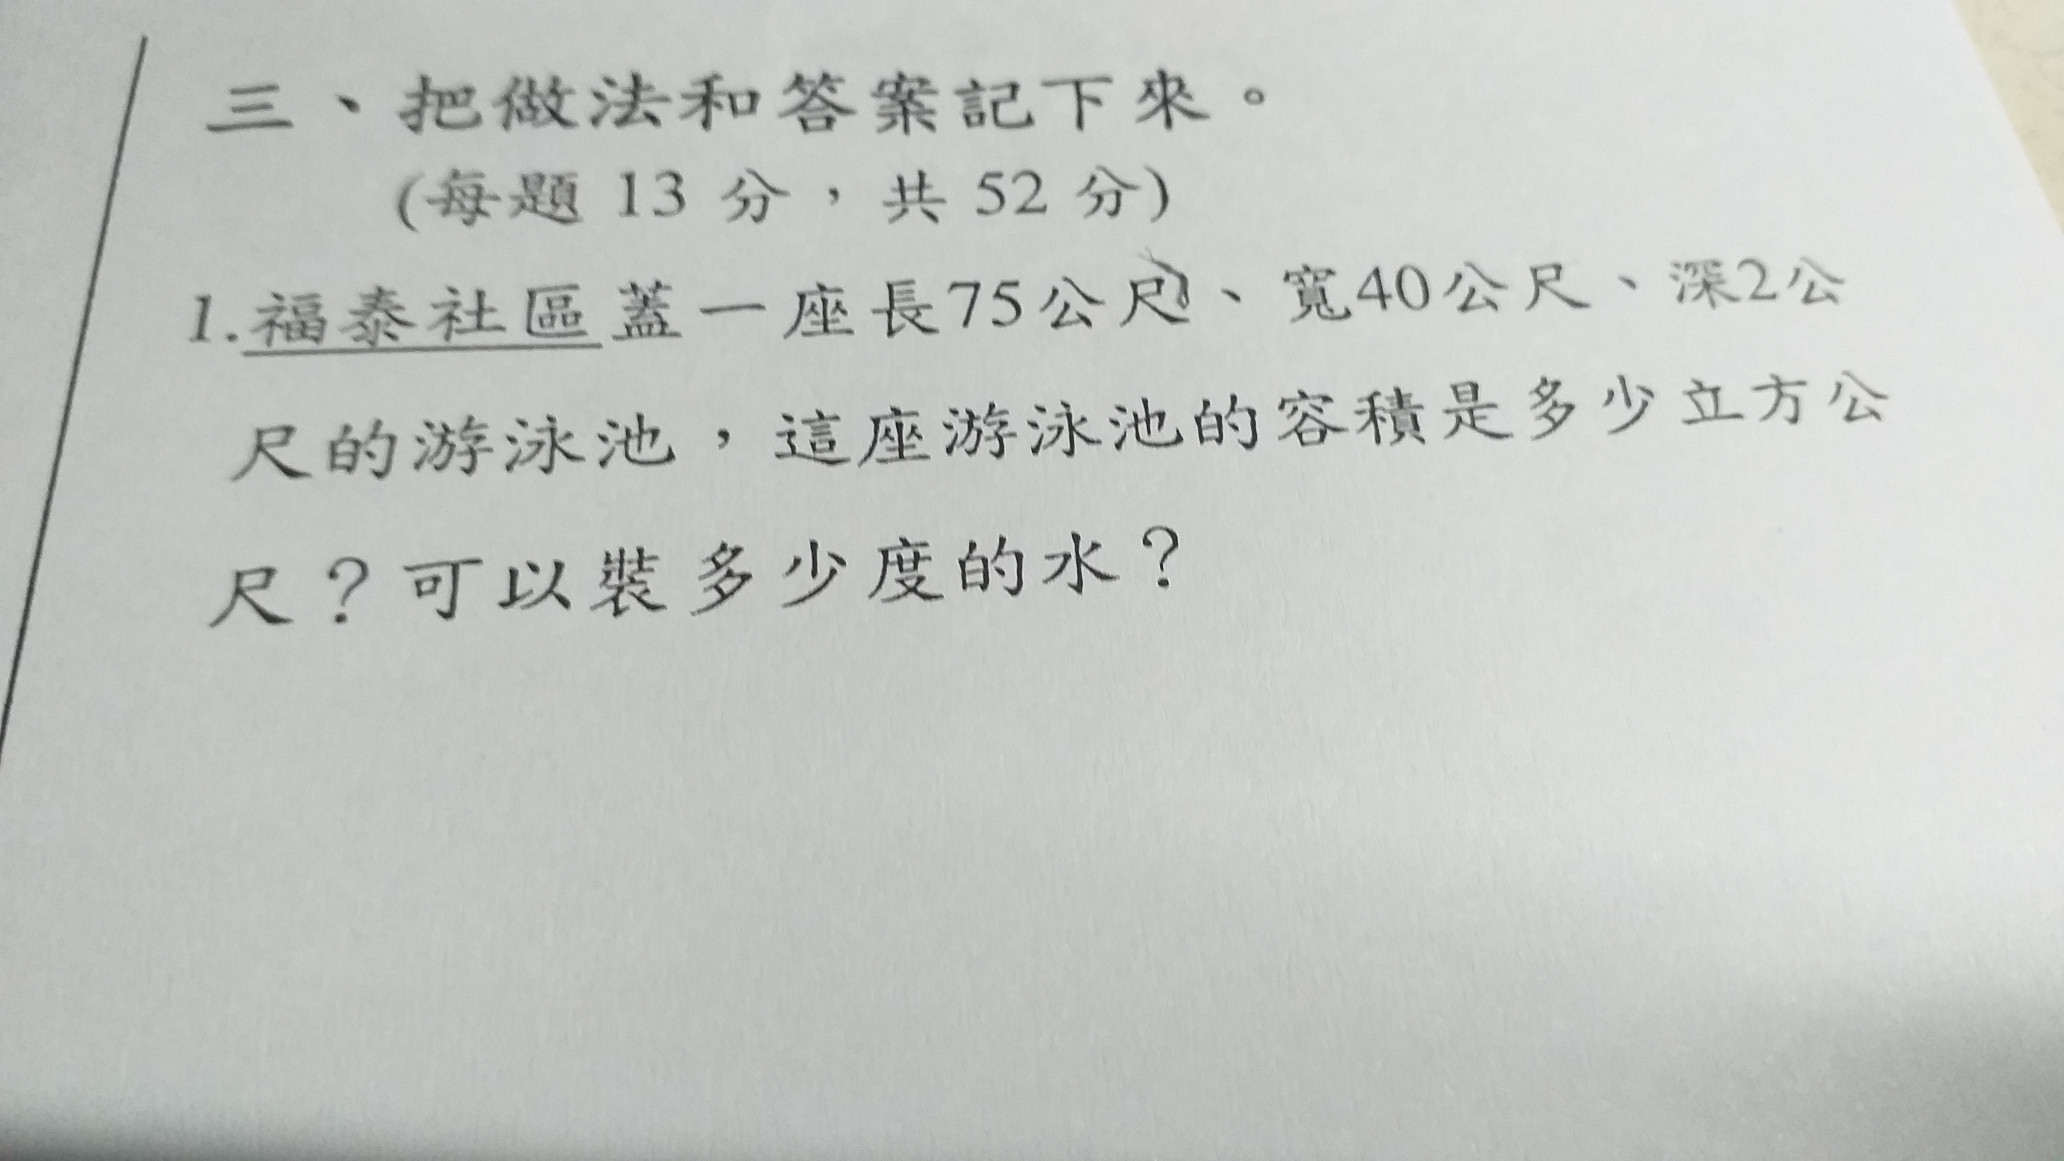 三、把做法和答案記下來。
(每題 13 分，共 52 分)
1.福泰社區蓋一座長75公尺、寬40公尺、深2公
尺的游泳池，這座游泳池的容積是多少立方公
尺？可以裝多少度的水？